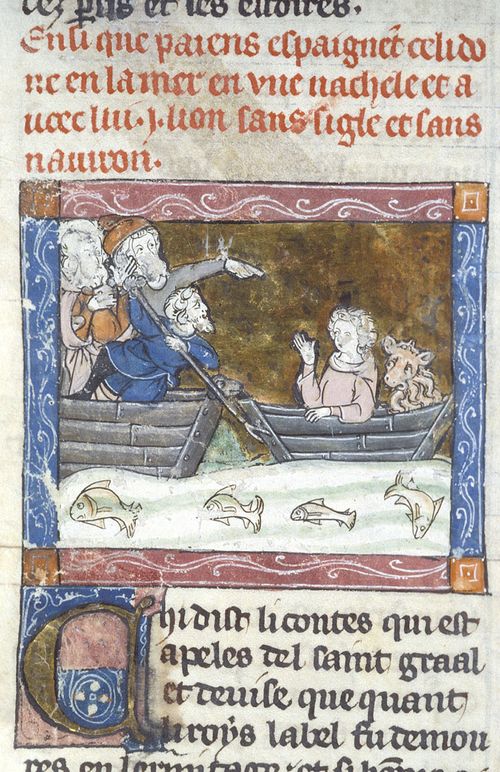 cez plus et les estoires.
Ensi que paiens espaignēt celido
ne en la mer en vne nachele et a
uoec lui .j. lion sans sigle et sans
nauiron.
Chi dist li contes qui est
apeles del saint graal
et deuise que quant
li roys label fu demou
res en lermitage et si